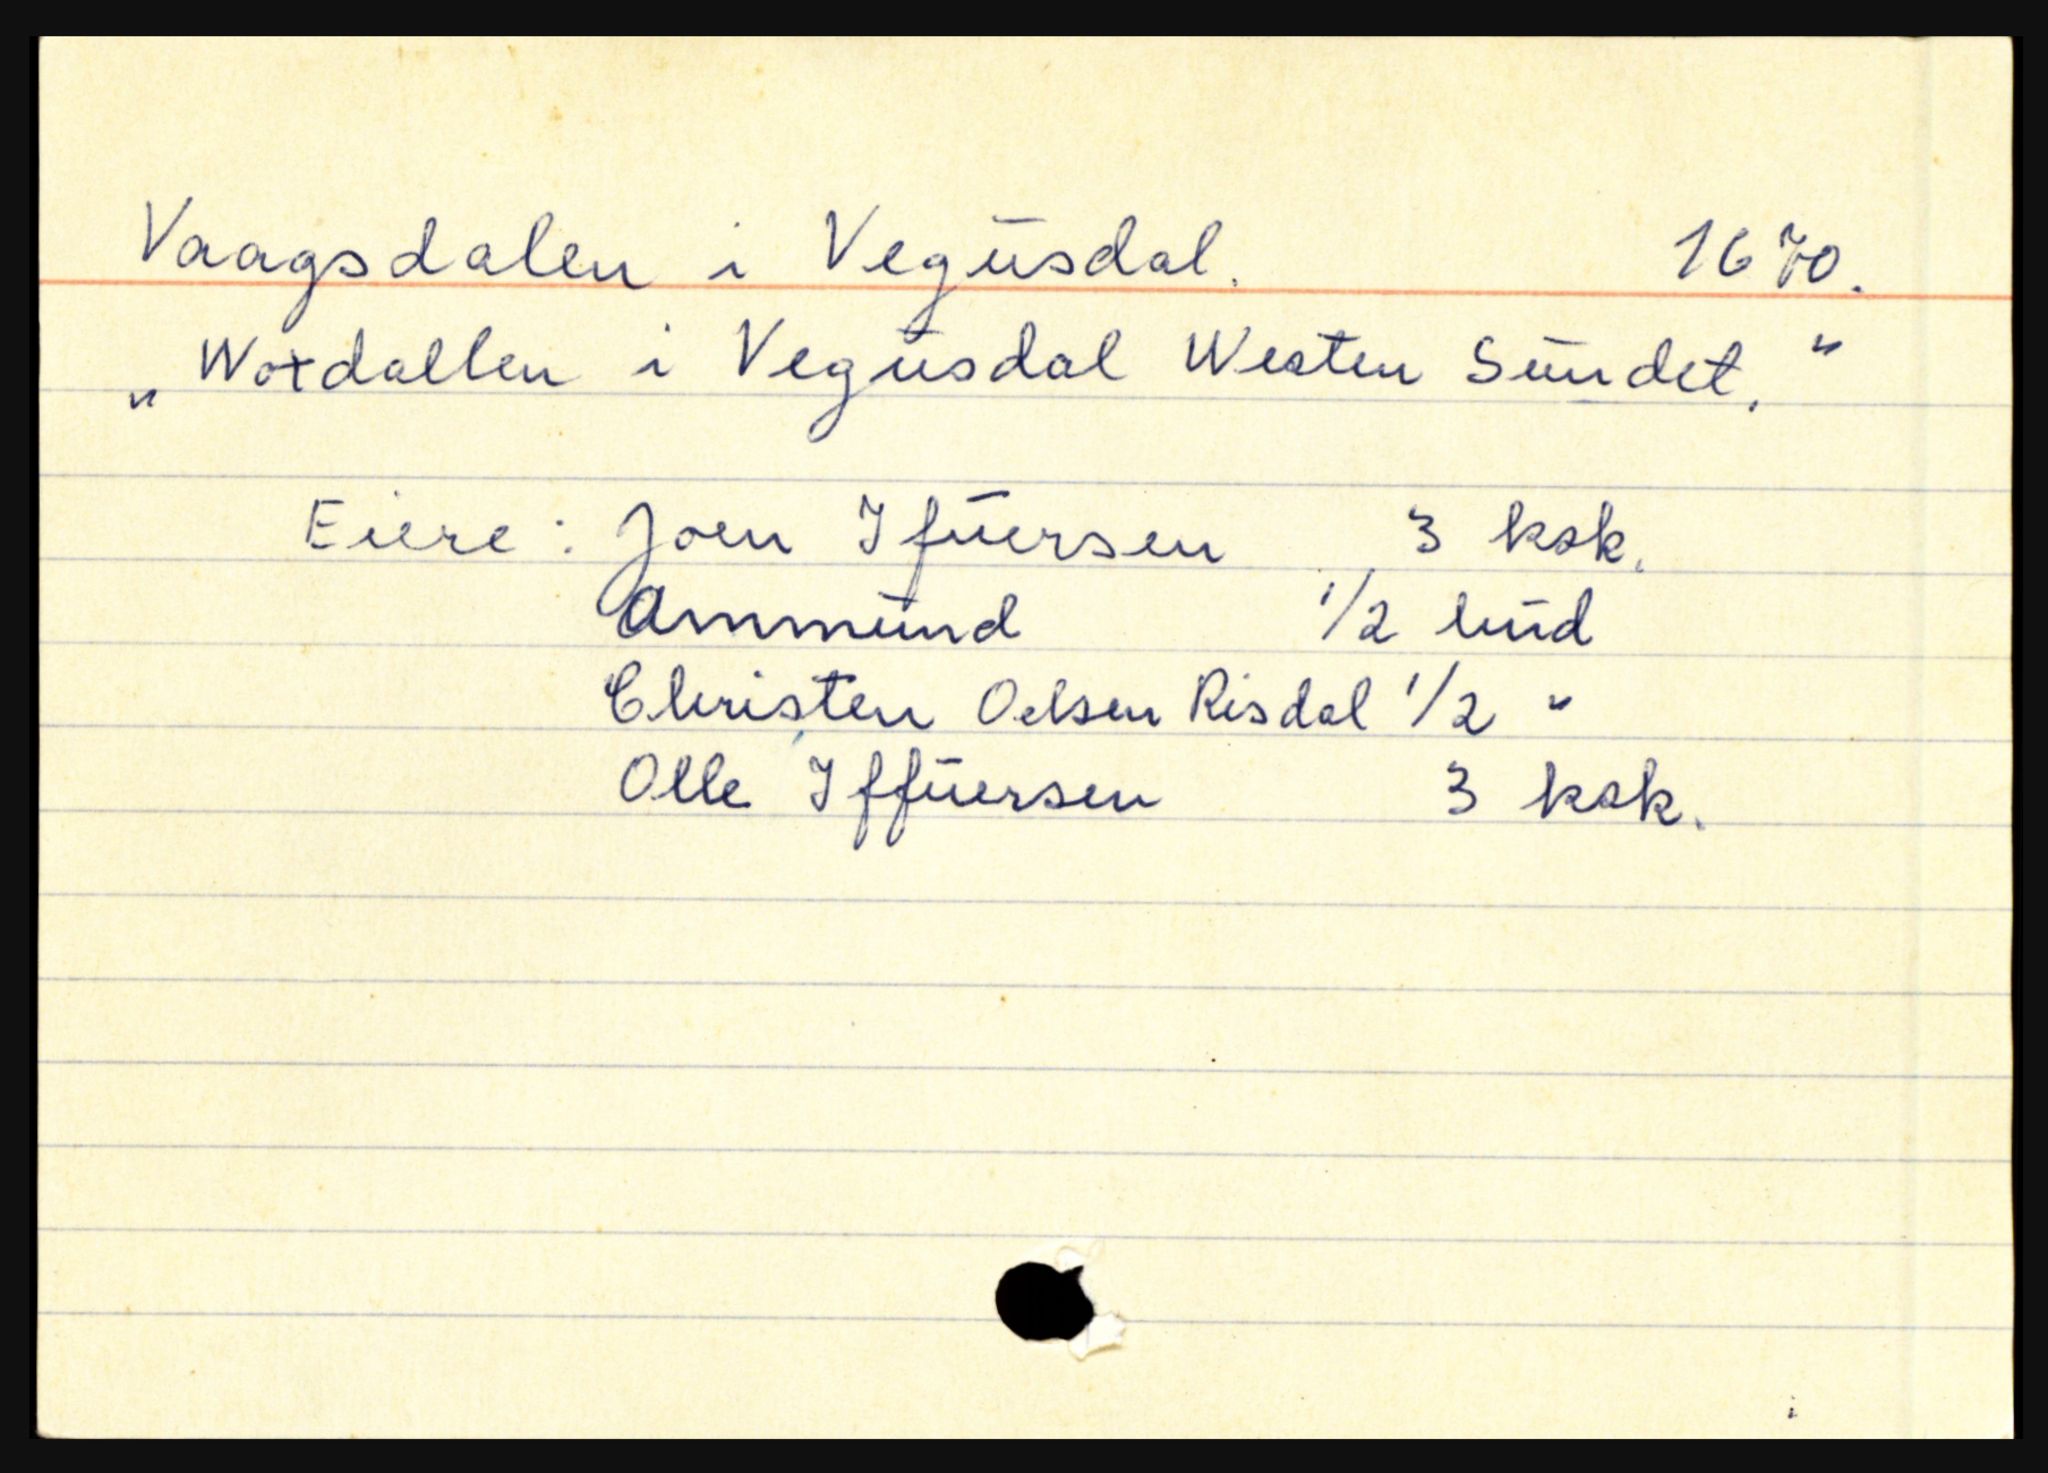 Vaagsdalen i Vegusdal. 1670.
„Woxdallen i Vegusdal Westen Sundet.“
Eiere: Joen Ifuersen 3 ksk.
Ammund 1/2 hud
Christen Oelsen Risdal 1/2 "
Olle Iffuersen 3 ksk.